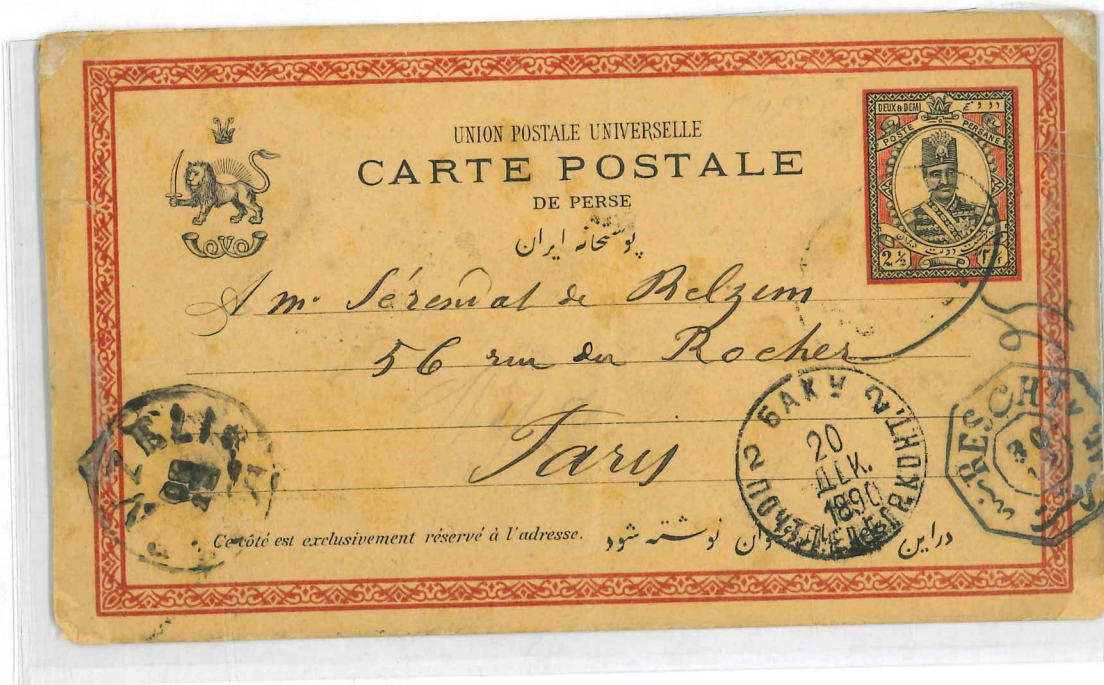 UNION POSTALE UNIVERSELLE
CARTE POSTALE
DE PERSE
پوستخانه ایران
DEUX & DEMI
POSTE PERSANE
2 ½
A mr Sérendat de Belzim
56 rue du Rocher
Paris
БАКУ 2
20
ДЕК.
1890
RESCHT
Ce côté est exclusivement réservé à l'adresse.
دراین نوشته شود